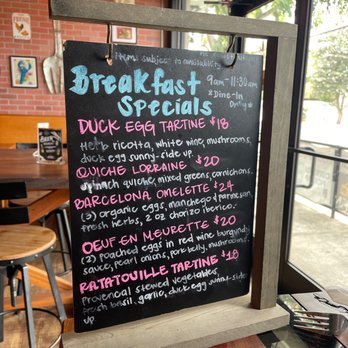 items subject to availability
Breakfast
Specials
9am-11:30am
*Dine-In
Only*
DUCK EGG TARTINE $18
Herb ricotta, white wine, mushrooms,
duck egg sunny-side up.
QUICHE LORRAINE $20
Spinach quiche, mixed greens, cornichons.
BARCELONA OMELETTE $24
(3) organic eggs, manchego & parmesan,
fresh herbs, 2 oz chorizo iberico.
OEUF EN MEURETTE $20
(2) poached eggs in red wine burgundy
sauce, pearl onions, pork belly, mushrooms.
RATATOUILLE TARTINE $18
Provencal stewed vegetables,
fresh basil, garlic, duck egg sunny-side
up